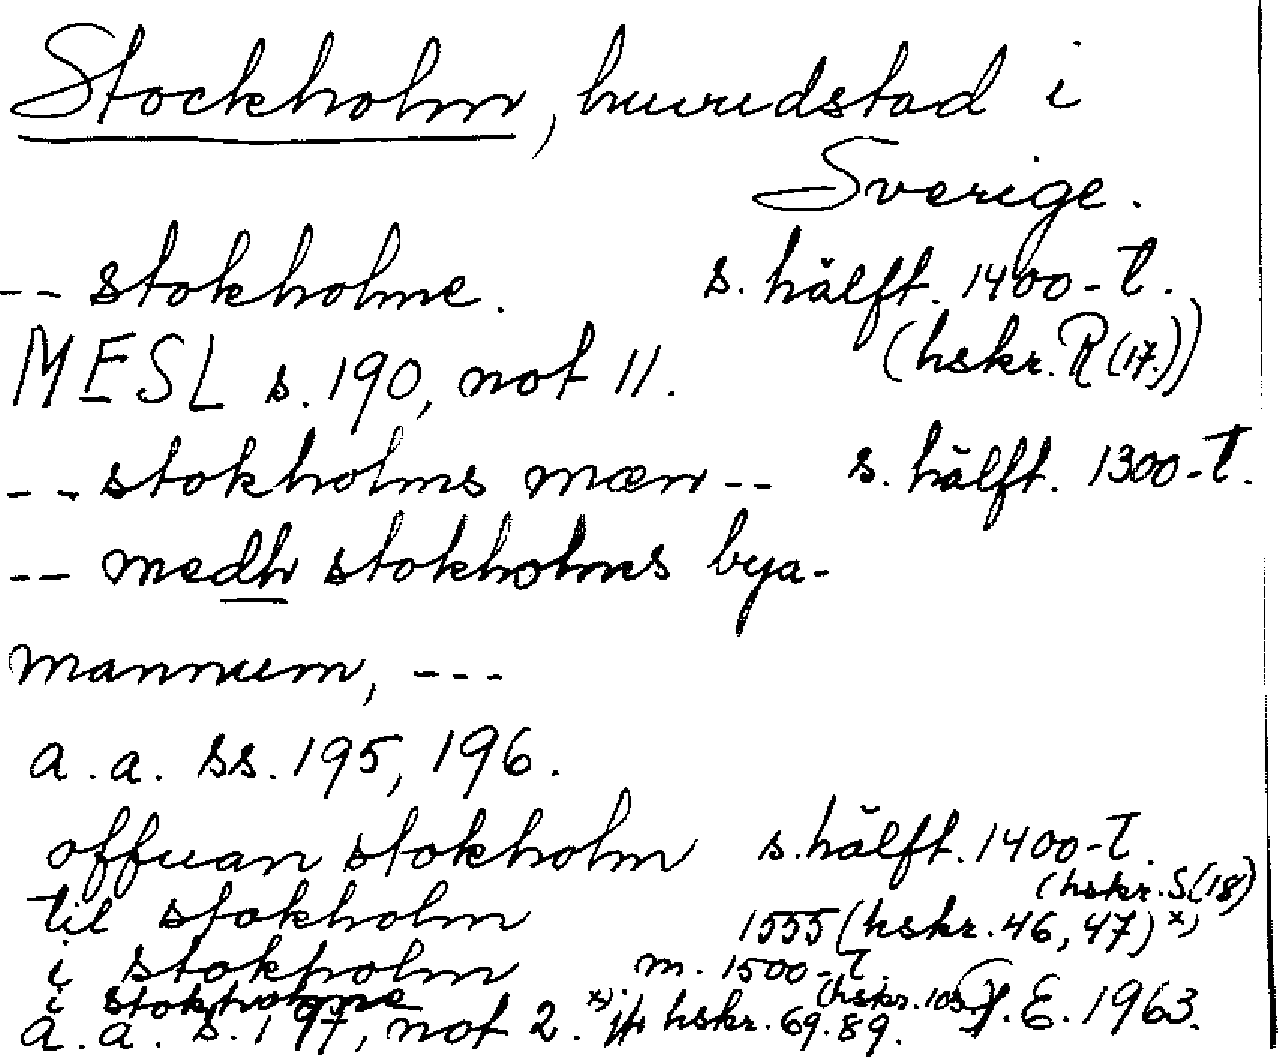 Stockholm, huvudstad i
Sverige.
-- stokholme. s. hälft. 1400-t.
(hskr. R (17.))
MESL s. 190, not 11.
-- stokholms mæn -- s. hälft. 1300-t.
-- medh stokholms bya-
mannum, ---
a.a. ss. 195, 196.
offuan stokholm s. hälft. 1400-t.
(hskr. S (18)
til stokholm 1555 (hskr. 46, 47) x)
i stokholm m. 1500-t.
i stokholme (hskr. 105)
a.a. s. 197, not 2. x) hskr. 69. 89. J.E. 1963.